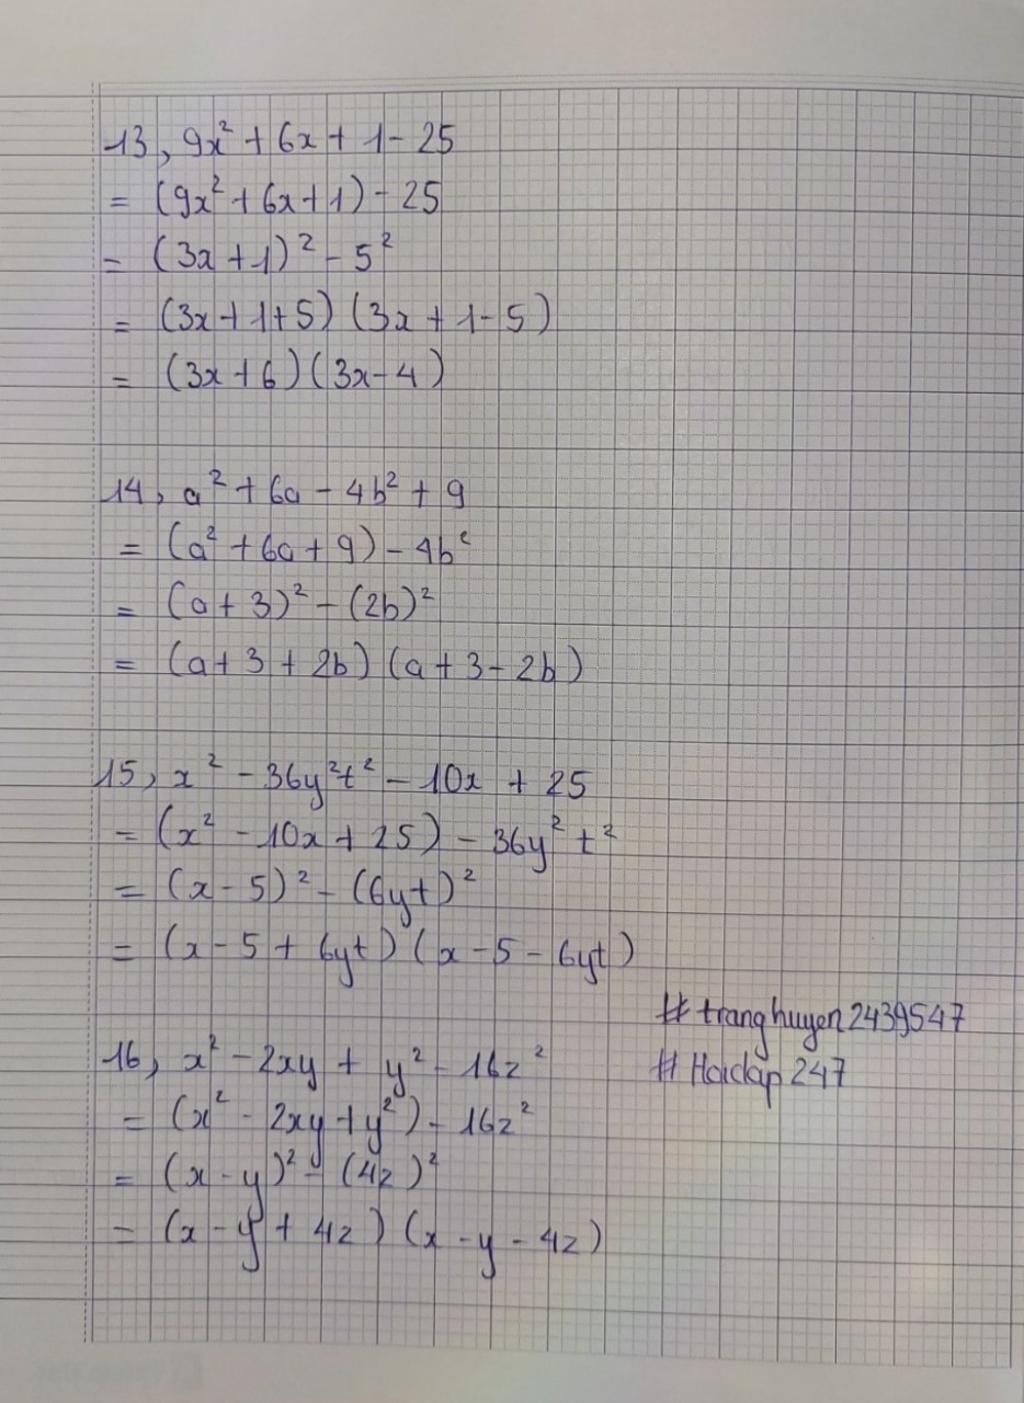 13, 9x² + 6x + 1 - 25
= (9x² + 6x + 1) - 25
= (3x + 1)² - 5²
= (3x + 1 + 5) (3x + 1 - 5)
= (3x + 6) (3x - 4)
14, a² + 6a - 4b² + 9
= (a² + 6a + 9) - 4b²
= (a + 3)² - (2b)²
= (a + 3 + 2b) (a + 3 - 2b)
15, x² - 36y²t² - 10x + 25
= (x² - 10x + 25) - 36y²t²
= (x - 5)² - (6yt)²
= (x - 5 + 6yt) (x - 5 - 6yt)
# tranghuyen2439547
16, x² - 2xy + y² - 16z²
# Hoidap 247
= (x² - 2xy + y²) - 16z²
= (x - y)² - (4z)²
= (x - y + 4z) (x - y - 4z)